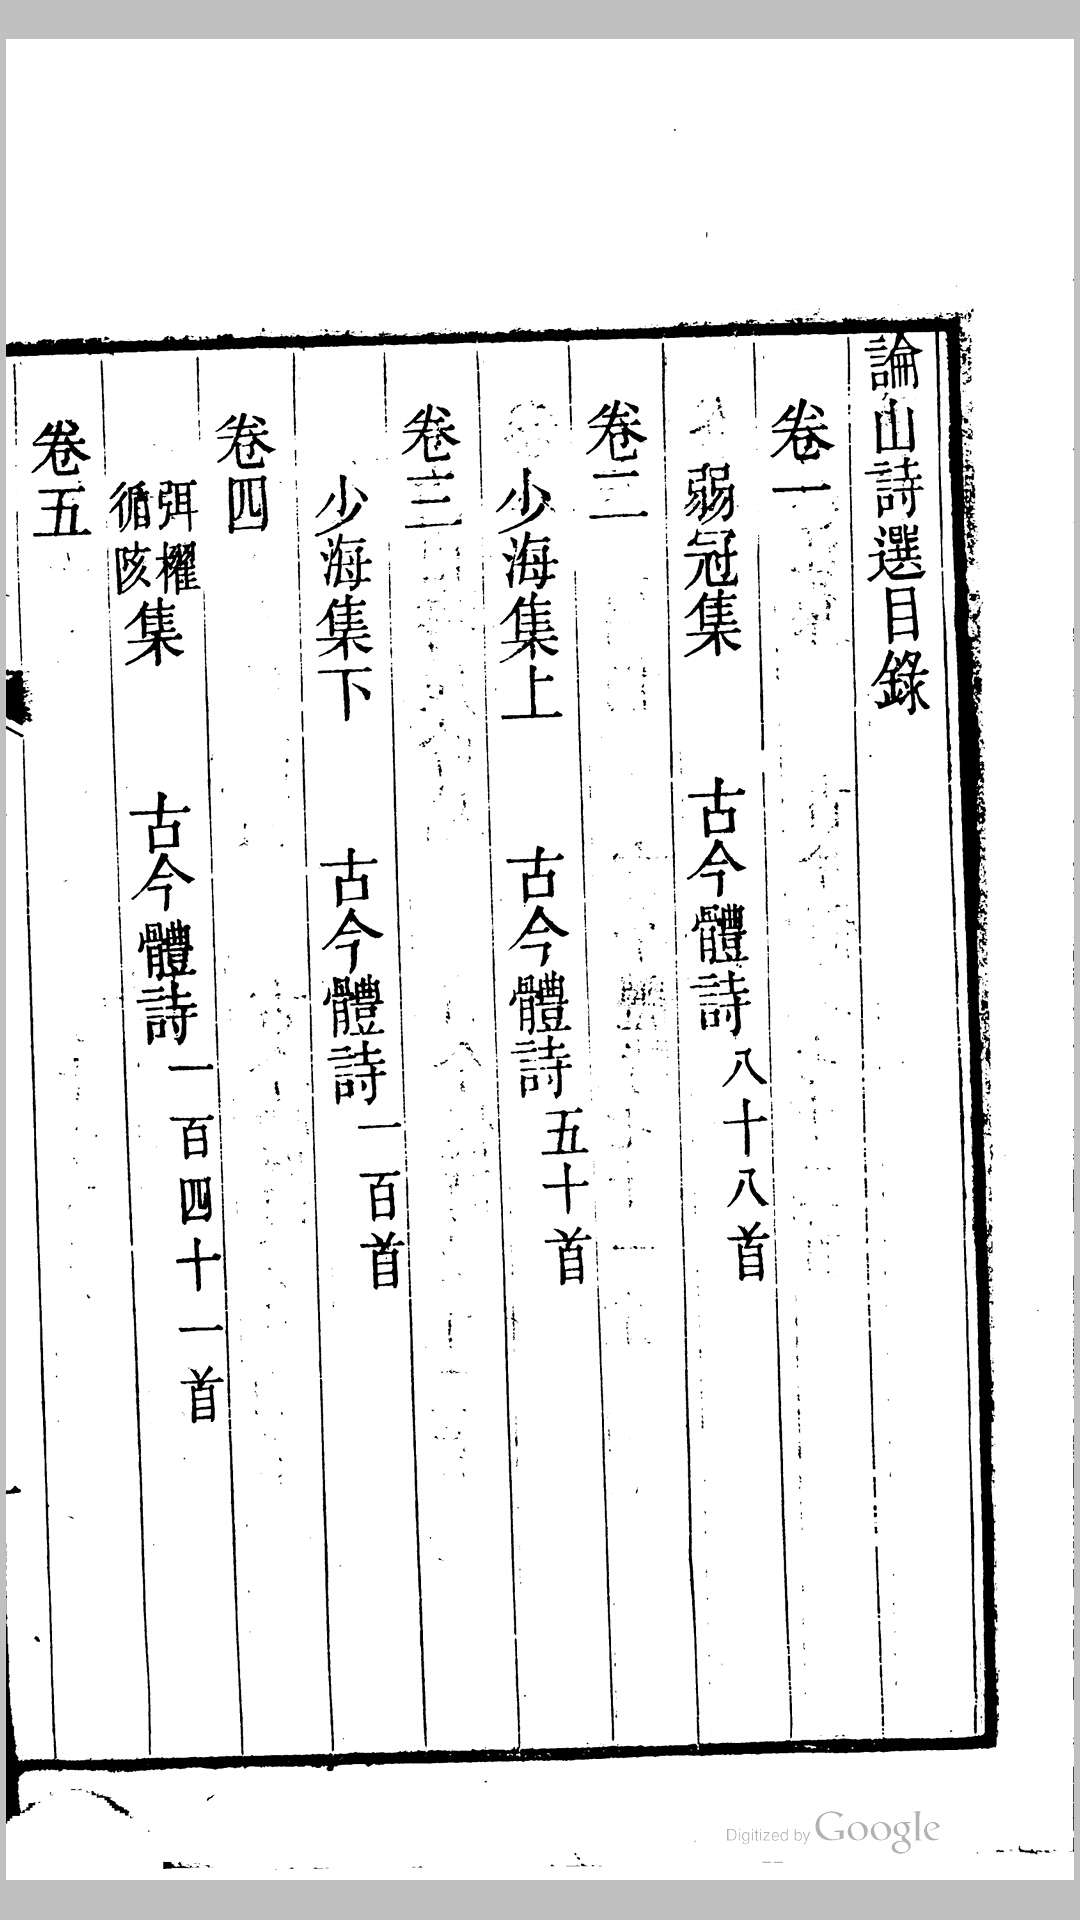 論山詩選目錄
卷一
弱冠集 古今體詩八十八首
卷二
少海集上 古今體詩五十首
卷三
少海集下 古今體詩一百首
卷四
弭櫂循陔集 古今體詩一百四十一首
卷五
Digitized by Google